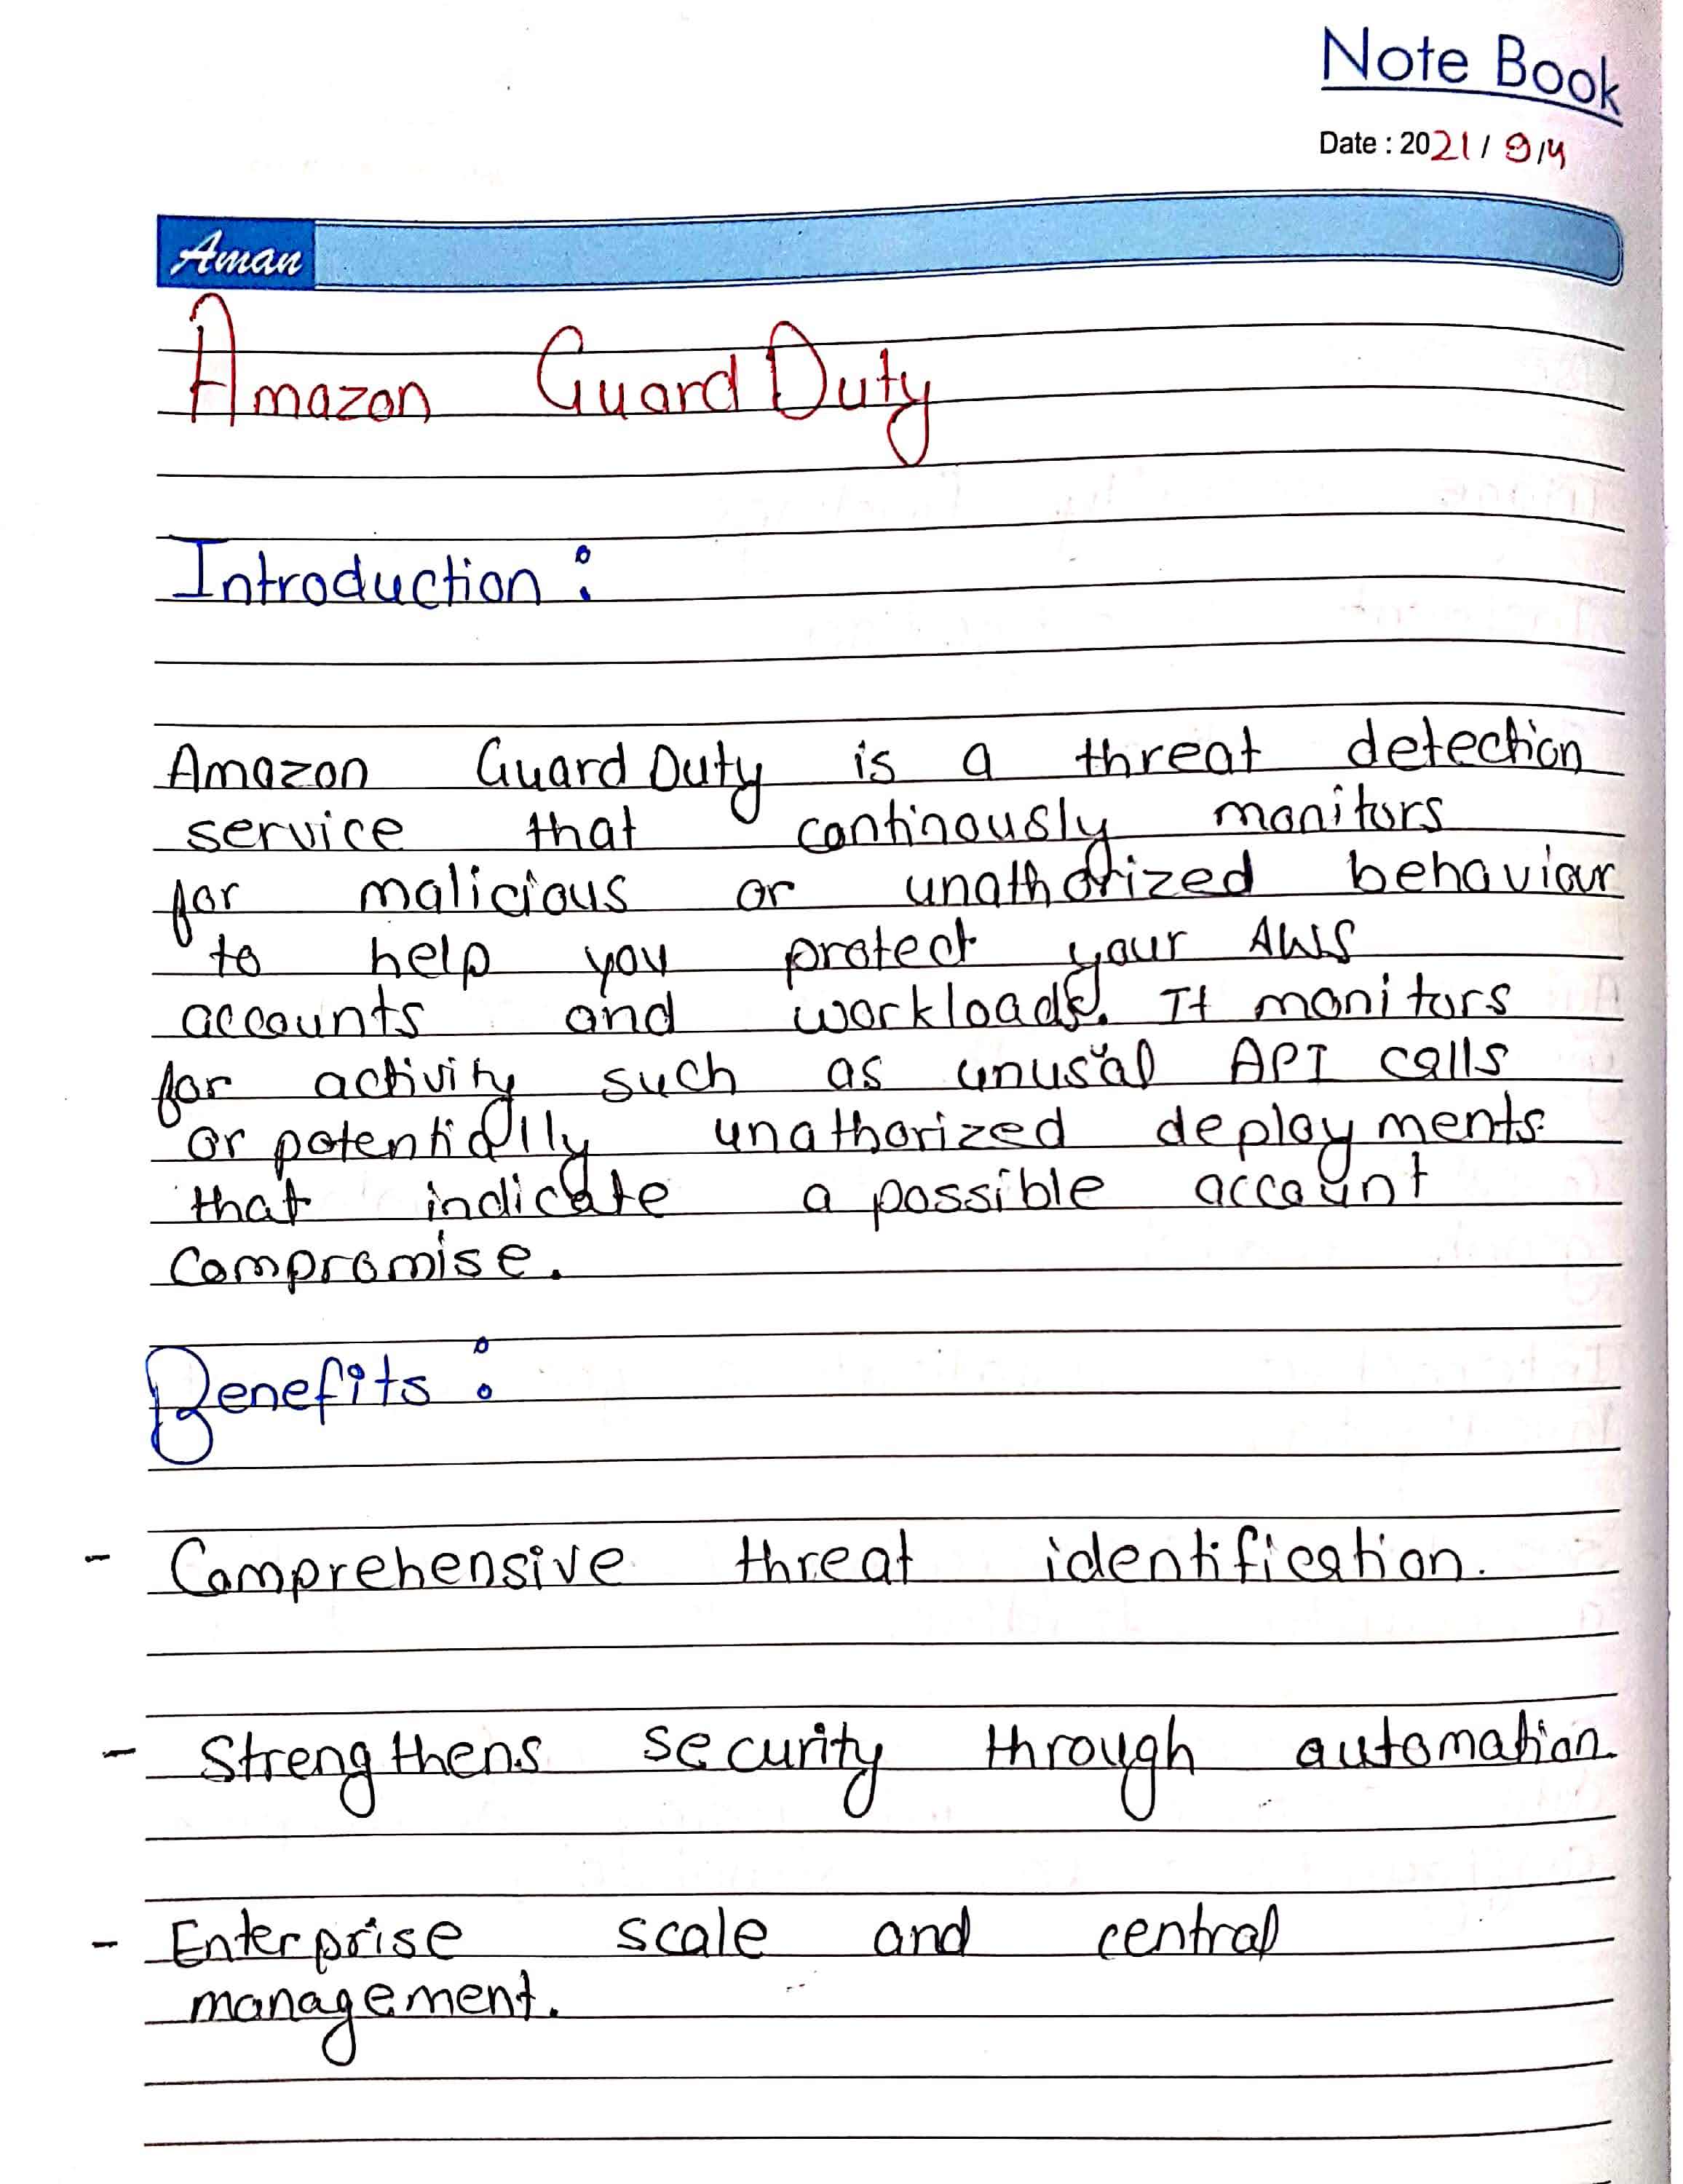 Note Book
Date : 2021 / 9/4
Aman
Amazon GuardDuty
Introduction :
Amazon GuardDuty is a threat detection
service that continously monitors
for malicious or unathorized behaviour
to help you protect your AWS
accounts and workloads. It monitors
for activity such as unusual API calls
or potentially unathorized deployments
that indicate a possible account
compromise.
Benefits :
- Comprehensive threat identification.
- Strengthens security through automation.
- Enterprise scale and central
management.